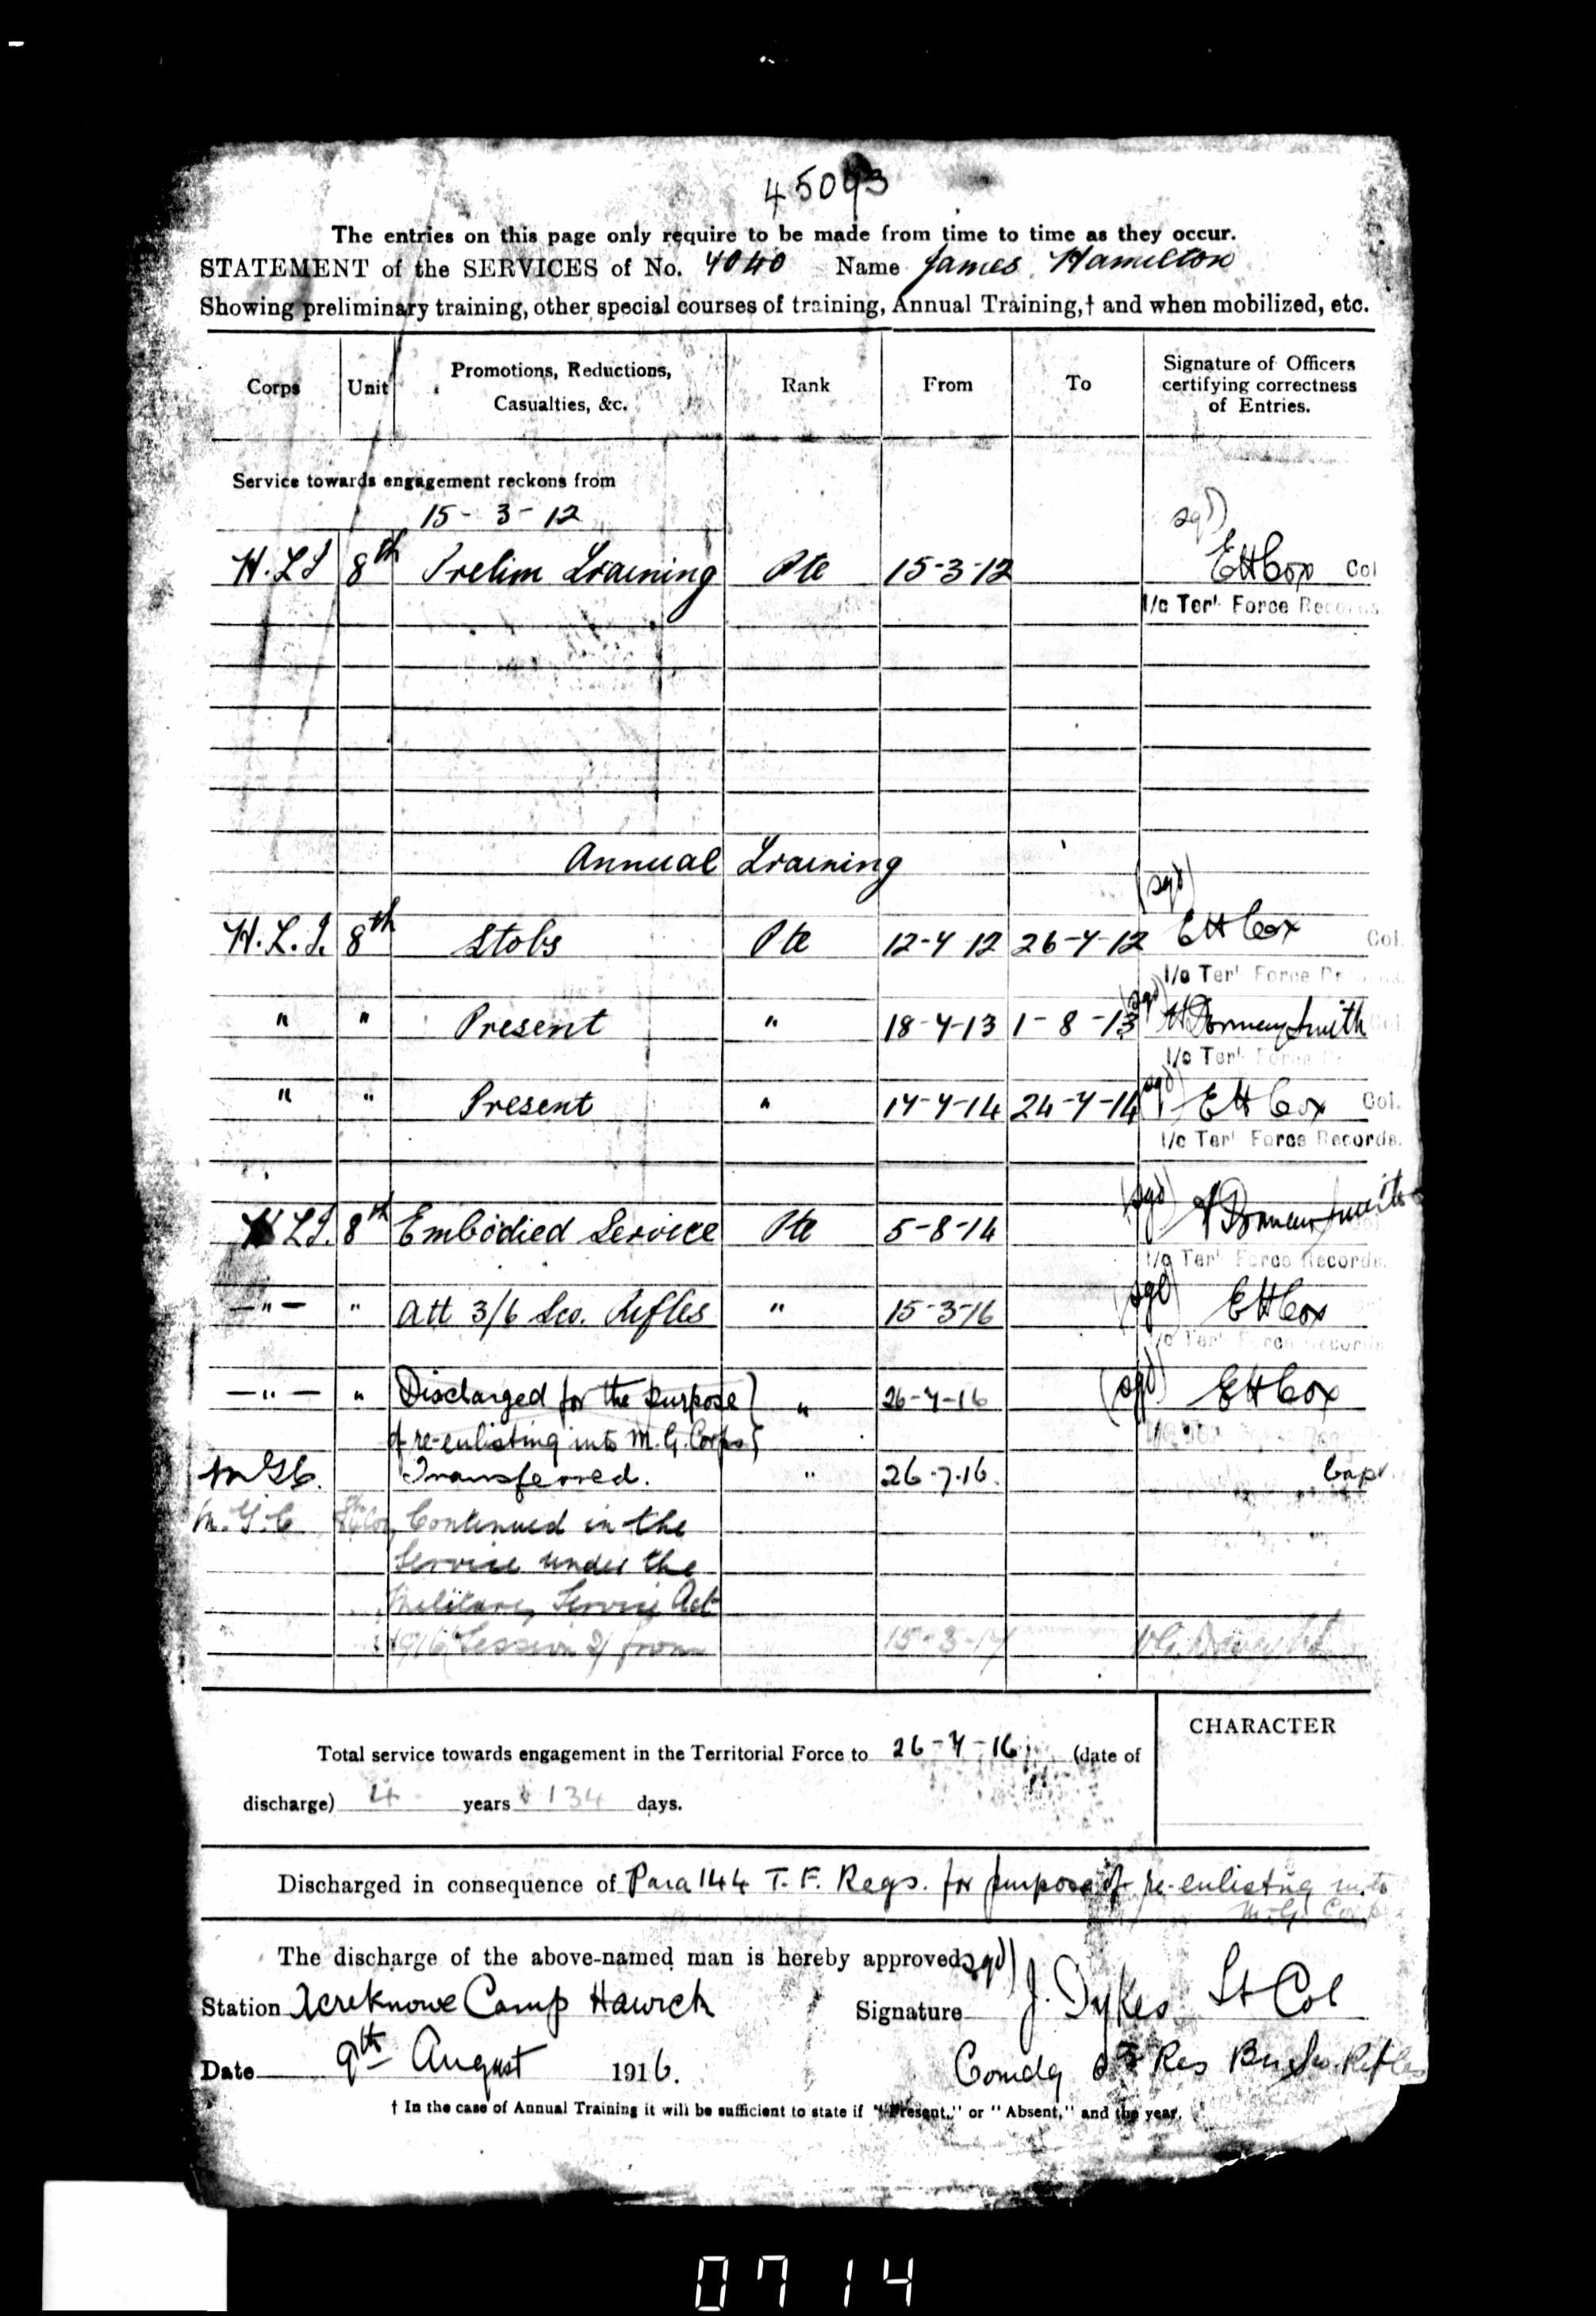 45093
The entries on this page only require to be made from time to time as they occur.
STATEMENT of the SERVICES of No. 4040 Name James Hamilton
Showing preliminary training, other special courses of training, Annual Training,† and when mobilized, etc.
Corps Unit Promotions, Reductions, Casualties, &c. Rank From To Signature of Officers certifying correctness of Entries.
Service towards engagement reckons from
15-3-12
sgd)
H.L.I 8th Prelim Training Pte 15-3-12 EHCox Col
I/c Ter' Force Records
Annual Training
(sgd)
H.L.I. 8th Stobs Pte 12-7-12 26-7-12 EHCox Col.
I/c Ter' Force
" " Present " 18-7-13 1-8-13 (sgd) Smith Col.
I/c Ter' Force
" " Present " 17-7-14 24-7-14 sgd) EHCox Col.
I/c Ter' Force Records.
H.L.I. 8th Embodied Service Pte 5-8-14 (sgd)
I/c Ter' Force Records.
-"- " Att 3/6 Sco. Rifles " 15-3-16 (sgd) EHCox
I/c Ter' Force Records
-"- " Discharged for the purpose " 26-7-16 (sgd) EHCox
of re-enlisting into M.G. Corps
M.G.C. Transferred. " 26-7-16. Capt.
M.G.C Continued in the
Service under the
Military Service Act
1916 (Session 2) from 15-3-17
Total service towards engagement in the Territorial Force to 26-7-16 (date of
discharge) 4 years 134 days.
CHARACTER
Discharged in consequence of Para 144 T.F. Regs. for purpose of re-enlisting into
M.G. Corps
The discharge of the above-named man is hereby approved. sgd)
Station Acreknowe Camp Hawick Signature J. Dykes Lt Col
Date 9th August 1916. Comdg Res Bn Sco. Rifles
† In the case of Annual Training it will be sufficient to state if "Present," or "Absent," and the year.
0714